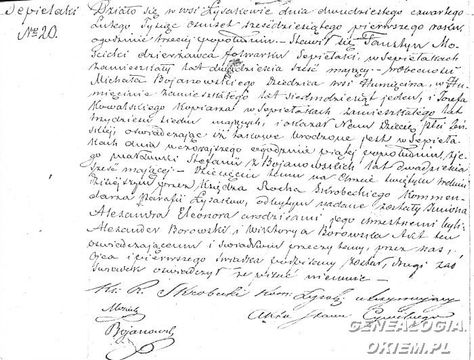 Sepielaki
№ 20.
Działo się w wsi Łysakowie dnia dwudziestego czwartego
Lutego Tysiąc ośmset sześćdziesiątego pierwszego roku,
ogodzinie trzeciej społudnia. – Stawił się Faustyn Mo-
ścicki dzierżawca folwarku Sepielaki, w Sepielakach
zamieszkały lat dwadzieścia sześć mający – wobecności
Michała Bojanowskiego Dziedzica wsi
zamieszkałego lat siedmdziesiąt jeden, i Józefa
Kowalskiego w Sepielakach zamieszkałego lat
trzydzieści siedm mających, i okazał Nam Dziecię płci Żeń-
skiej, oświadczając iż takowe urodzone jest w Sepiela-
kach dnia wczorajszego ogodzinie piątej społudnia, z je-
go małżonki Stefanii z Bojanowskich lat dwadzieścia
sześć mającej – Dziecięciu temu na Chrzcie świętym w dniu
dzisiejszym przez Księdza Rocha Skrobeckiego Kommen-
darza Parafii Łysaków, odbytym nadane zostały Imiona
Alexandra Eleonora a rodzicami jego chrzestnemi byli
Alexander Borowski i Wiktorya Borowska Akt ten
oświadczającemu i świadkom przeczytany, przez nas,
Ojca i pierwszego świadka podpisany został, drugi zaś
Świadek oświadczył że pisać nieumie –
Ks. R. Skrobecki Kom. Łysak. utrzymujący
Akta Stanu Cywilnego
Mościcki
Bojanowski
GENEALOGIA.
OKIEM.PL